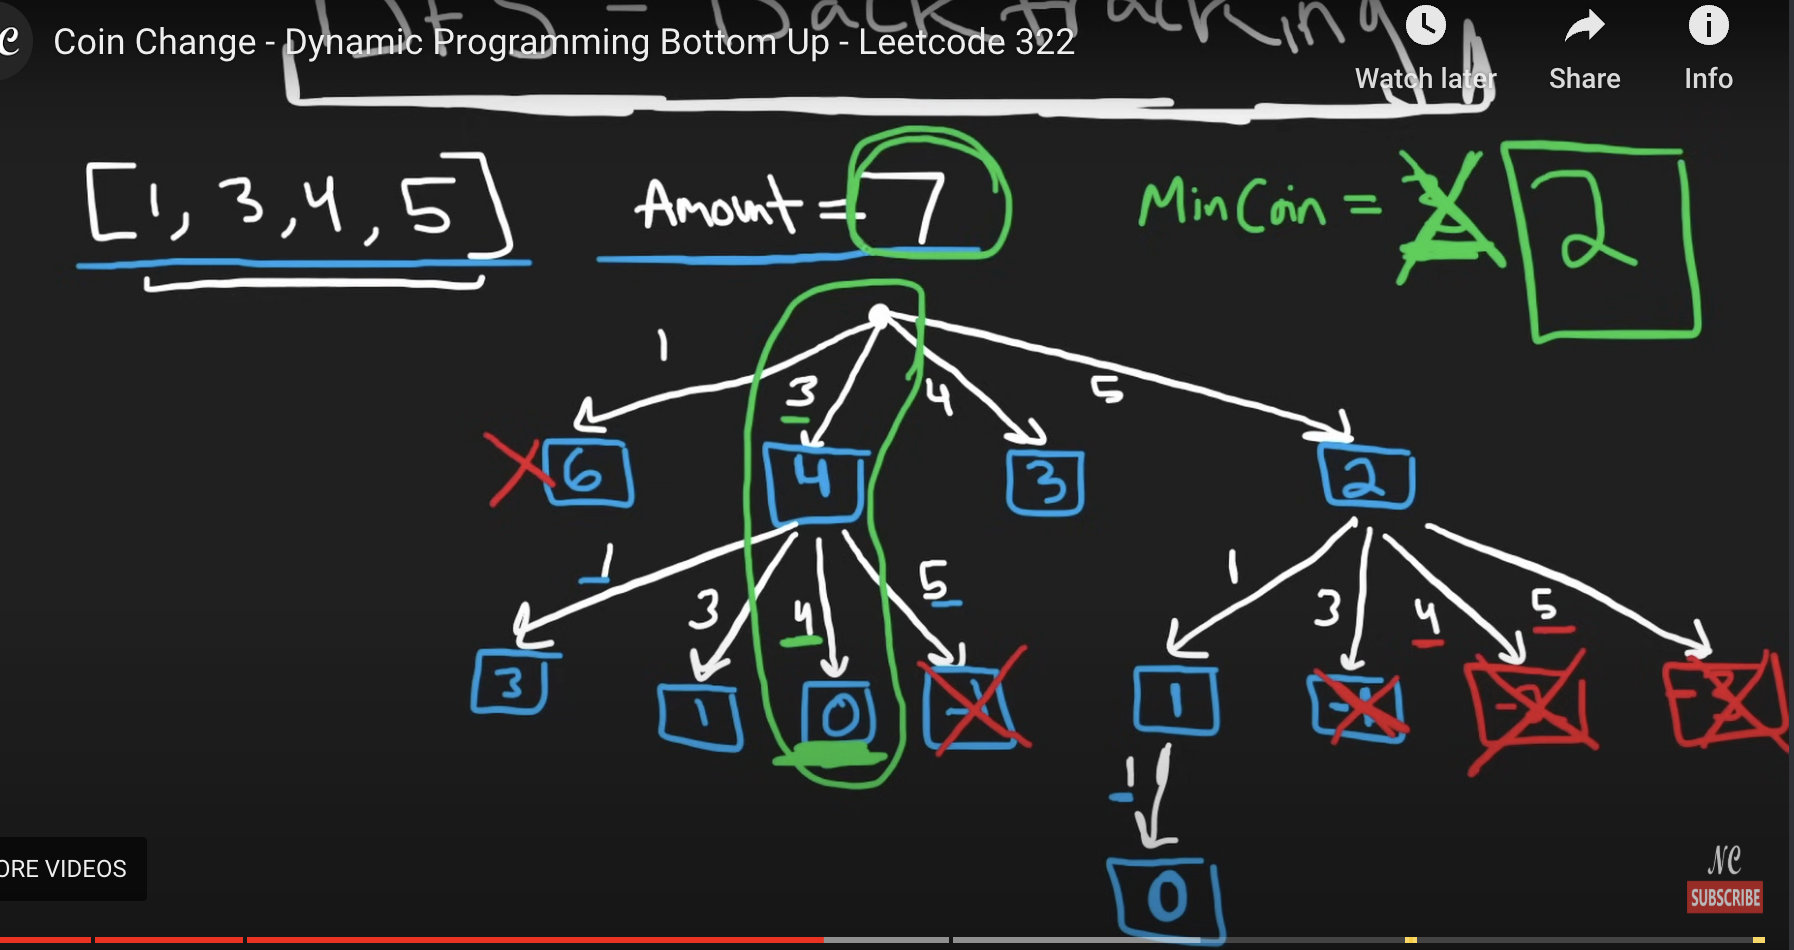 DFS = Backtracking
Coin Change - Dynamic Programming Bottom Up - Leetcode 322
Watch later
Share
Info
[1, 3, 4, 5]
Amount = 7
MinCoin =
2
1
3
4
5
6
4
3
2
1
3
4
5
1
3
4
5
3
1
0
-1
1
-1
-2
-3
-1
0
ORE VIDEOS
NC
SUBSCRIBE